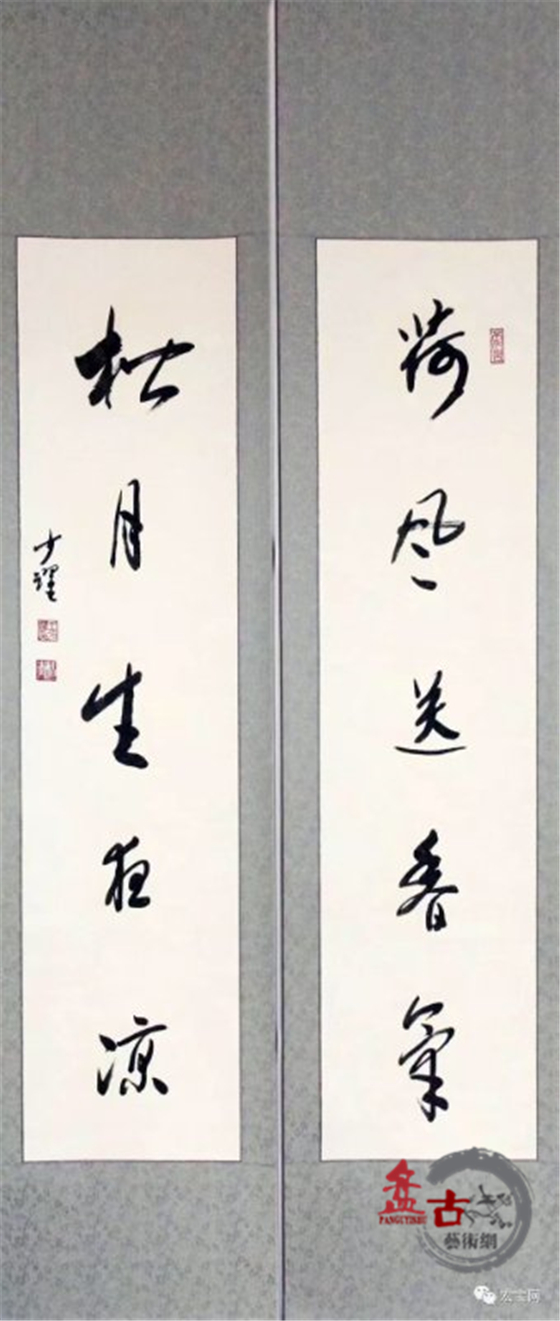 荷风送香氣
松月生夜凉
少
盘古
PANGUYISHU
藝術網
宏宝网